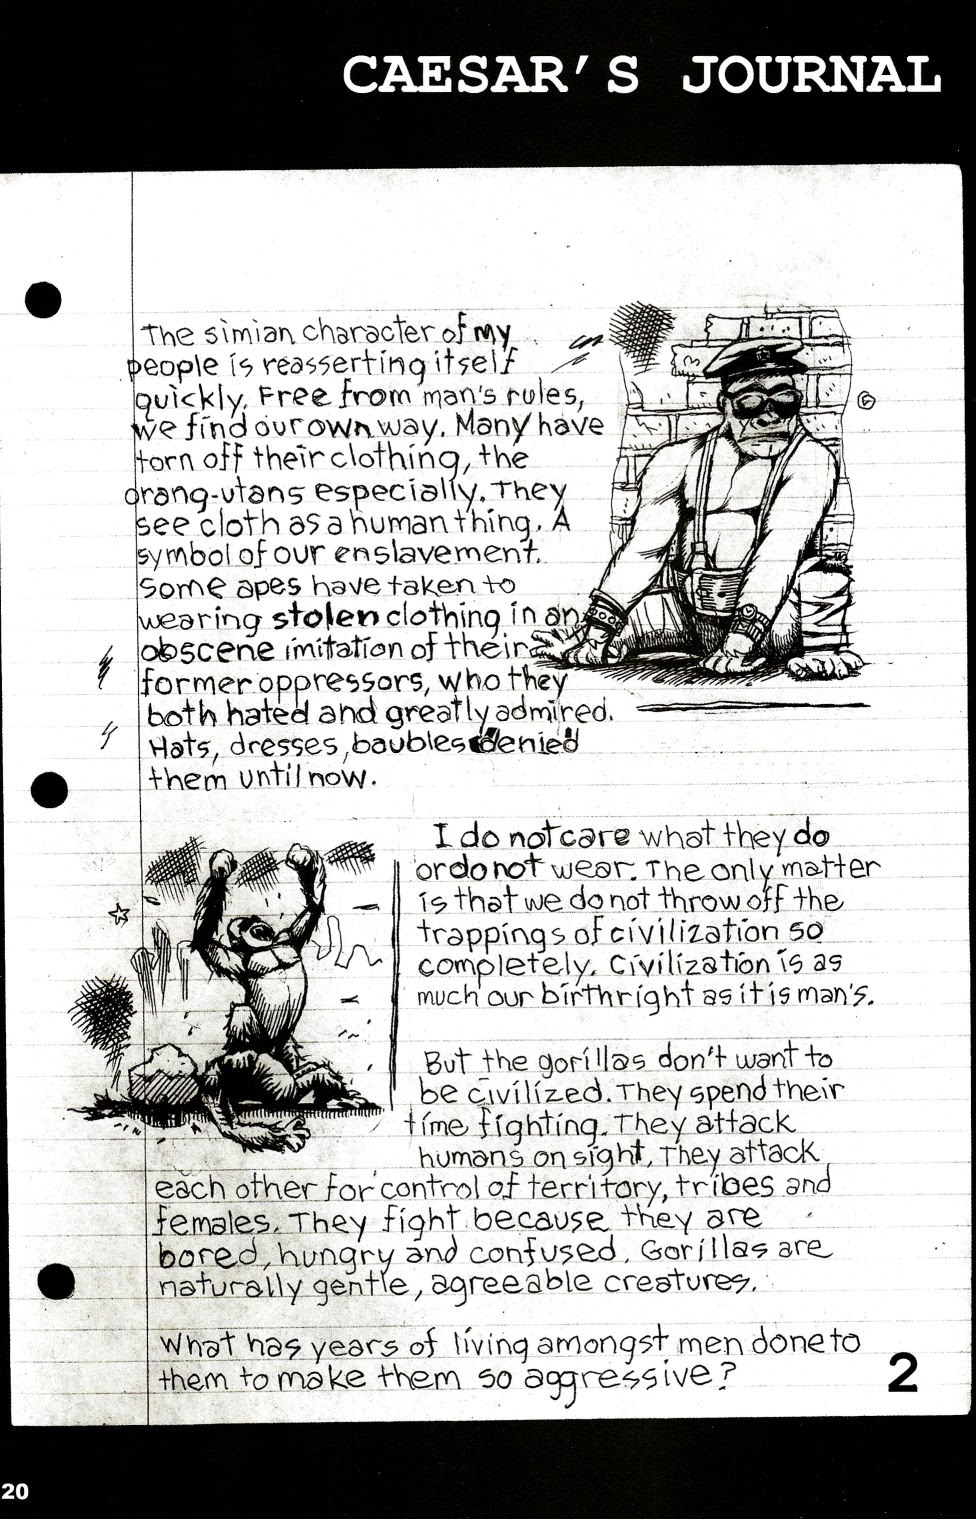 CAESAR'S JOURNAL
The simian character of my
people is reasserting itself
quickly. Free from man's rules,
we find our own way. Many have
torn off their clothing, the
orang-utans especially. They
see cloth as a human thing. A
symbol of our enslavement.
Some apes have taken to
wearing stolen clothing in an
obscene imitation of their
former oppressors, who they
both hated and greatly admired.
Hats, dresses, baubles denied
them until now.
I do not care what they do
or do not wear. The only matter
is that we do not throw off the
trappings of civilization so
completely. Civilization is as
much our birthright as it is man's.
But the gorillas don't want to
be civilized. They spend their
time fighting. They attack
humans on sight. They attack
each other for control of territory, tribes and
females. They fight because they are
bored, hungry and confused. Gorillas are
naturally gentle, agreeable creatures.
What has years of living amongst men done to
them to make them so aggressive?
2
20